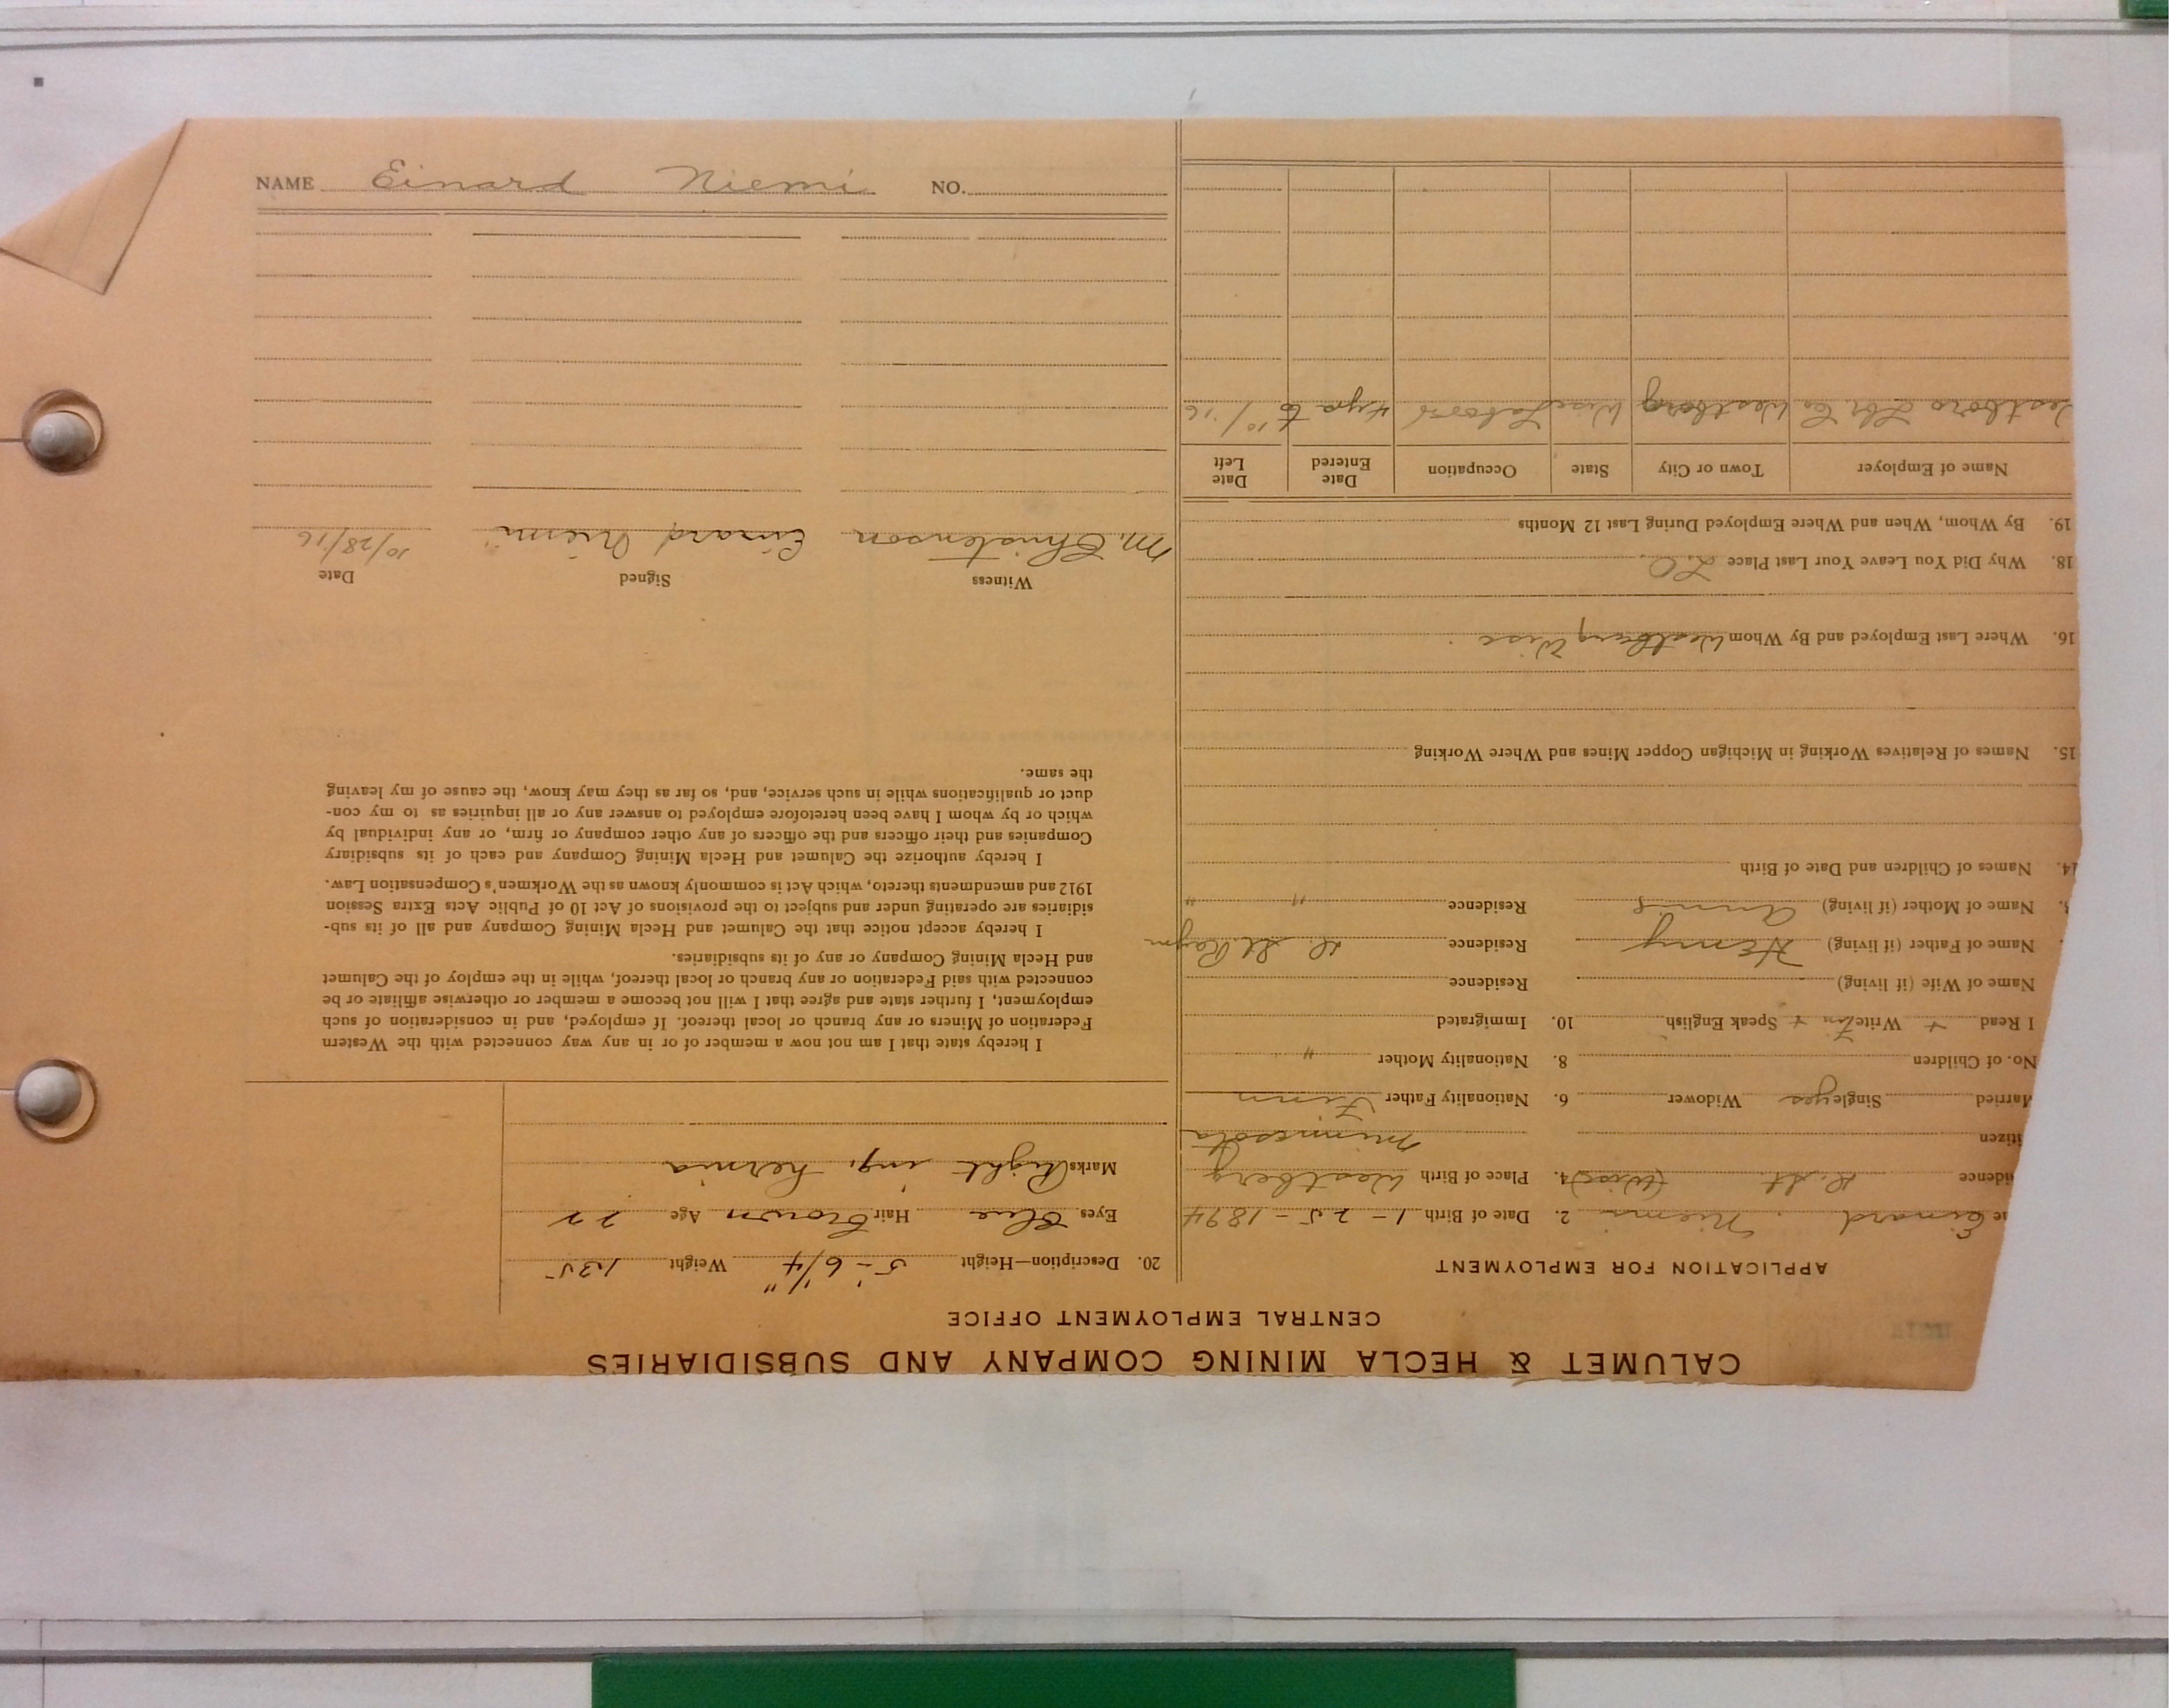 CALUMET & HECLA MINING COMPANY AND SUBSIDIARIES
CENTRAL EMPLOYMENT OFFICE
APPLICATION FOR EMPLOYMENT
e Einard Niemi 2. Date of Birth 1-25-1894
idence R. St (Wisc) 4. Place of Birth Westberg
itizen Minnesota
Married Single yes Widower 6. Nationality Father Finn
No. of Children 8. Nationality Mother "
I Read + Write Finn + Speak English 10. Immigrated
Name of Wife (if living) Residence
Name of Father (if living) Henry Residence R. St.
Name of Mother (if living) Annie Residence " "
14. Names of Children and Date of Birth
15. Names of Relatives Working in Michigan Copper Mines and Where Working
16. Where Last Employed and By Whom Westberg Wisc
18. Why Did You Leave Your Last Place
19. By Whom, When and Where Employed During Last 12 Months
Name of Employer Town or City State Occupation Date Entered Date Left
estboro Lbr. Co Westberg Wisc Labor 4 yrs to 10/16
20. Description—Height 5'-6 1/4" Weight 135
Eyes Blue Hair Brown Age 22
Marks Right ing. hernia
I hereby state that I am not now a member of or in any way connected with the Western
Federation of Miners or any branch or local thereof. If employed, and in consideration of such
employment, I further state and agree that I will not become a member or otherwise affiliate or be
connected with said Federation or any branch or local thereof, while in the employ of the Calumet
and Hecla Mining Company or any of its subsidiaries.
I hereby accept notice that the Calumet and Hecla Mining Company and all of its sub-
sidiaries are operating under and subject to the provisions of Act 10 of Public Acts Extra Session
1912 and amendments thereto, which Act is commonly known as the Workmen's Compensation Law.
I hereby authorize the Calumet and Hecla Mining Company and each of its subsidiary
Companies and their officers and the officers of any other company or firm, or any individual by
which or by whom I have been heretofore employed to answer any or all inquiries as to my con-
duct or qualifications while in such service, and, so far as they may know, the cause of my leaving
the same.
Witness Signed Date
M. Christenson Einard Niemi 10/28/16
NAME Einard Niemi NO.